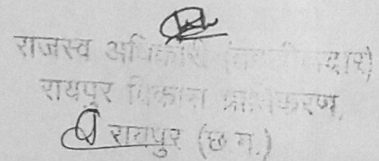 राजस्व अधिकारी (तहसीलदार)
रायपुर विकास प्राधिकरण,
रायपुर (छ.ग.)